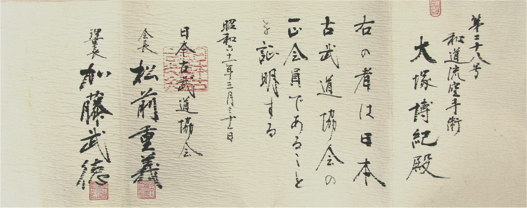 第二十八号
和道流空手術
大塚博紀殿
右の者は日本
古武道協会の
正会員であることを
証明する
昭和六十一年三月三十一日
日本古武道協会
会長 松前重義
理事長 加藤武徳